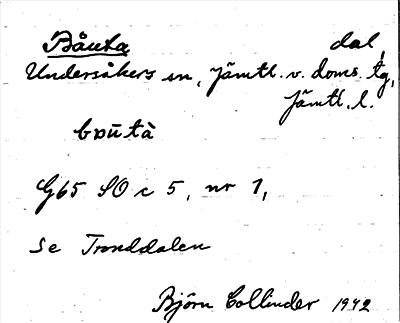 Båuta dal,
Undersåkers sn, Jämtl. v. doms. tg,
Jämtl. l.
G65 SO c 5, nr 1,
Se Tronddalen
Björn Collinder 1942